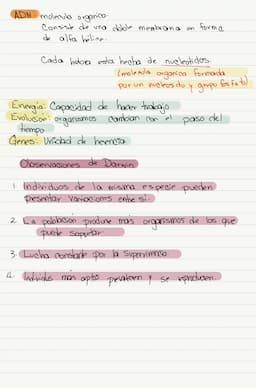 ADN molecula organica.
Consiste de una doble membrana en forma
de alfa helice.
Cada hebra esta hecha de nucleotidos.
(molecula organica formada
por un nucleosido y grupo fosfato)
Energia: Capacidad de hacer trabajo
Evolucion: organismos cambian con el paso del
tiempo
Genes: Unidad de herencia
Observaciones de Darwin
1. Individuos de la misma especie pueden
presentar variaciones entre si.
2. La poblacion produce mas organismos de los que
puede soportar
3. Lucha constante por la supervivencia
4. Individuo mas apto prevalecen y se reproducen.